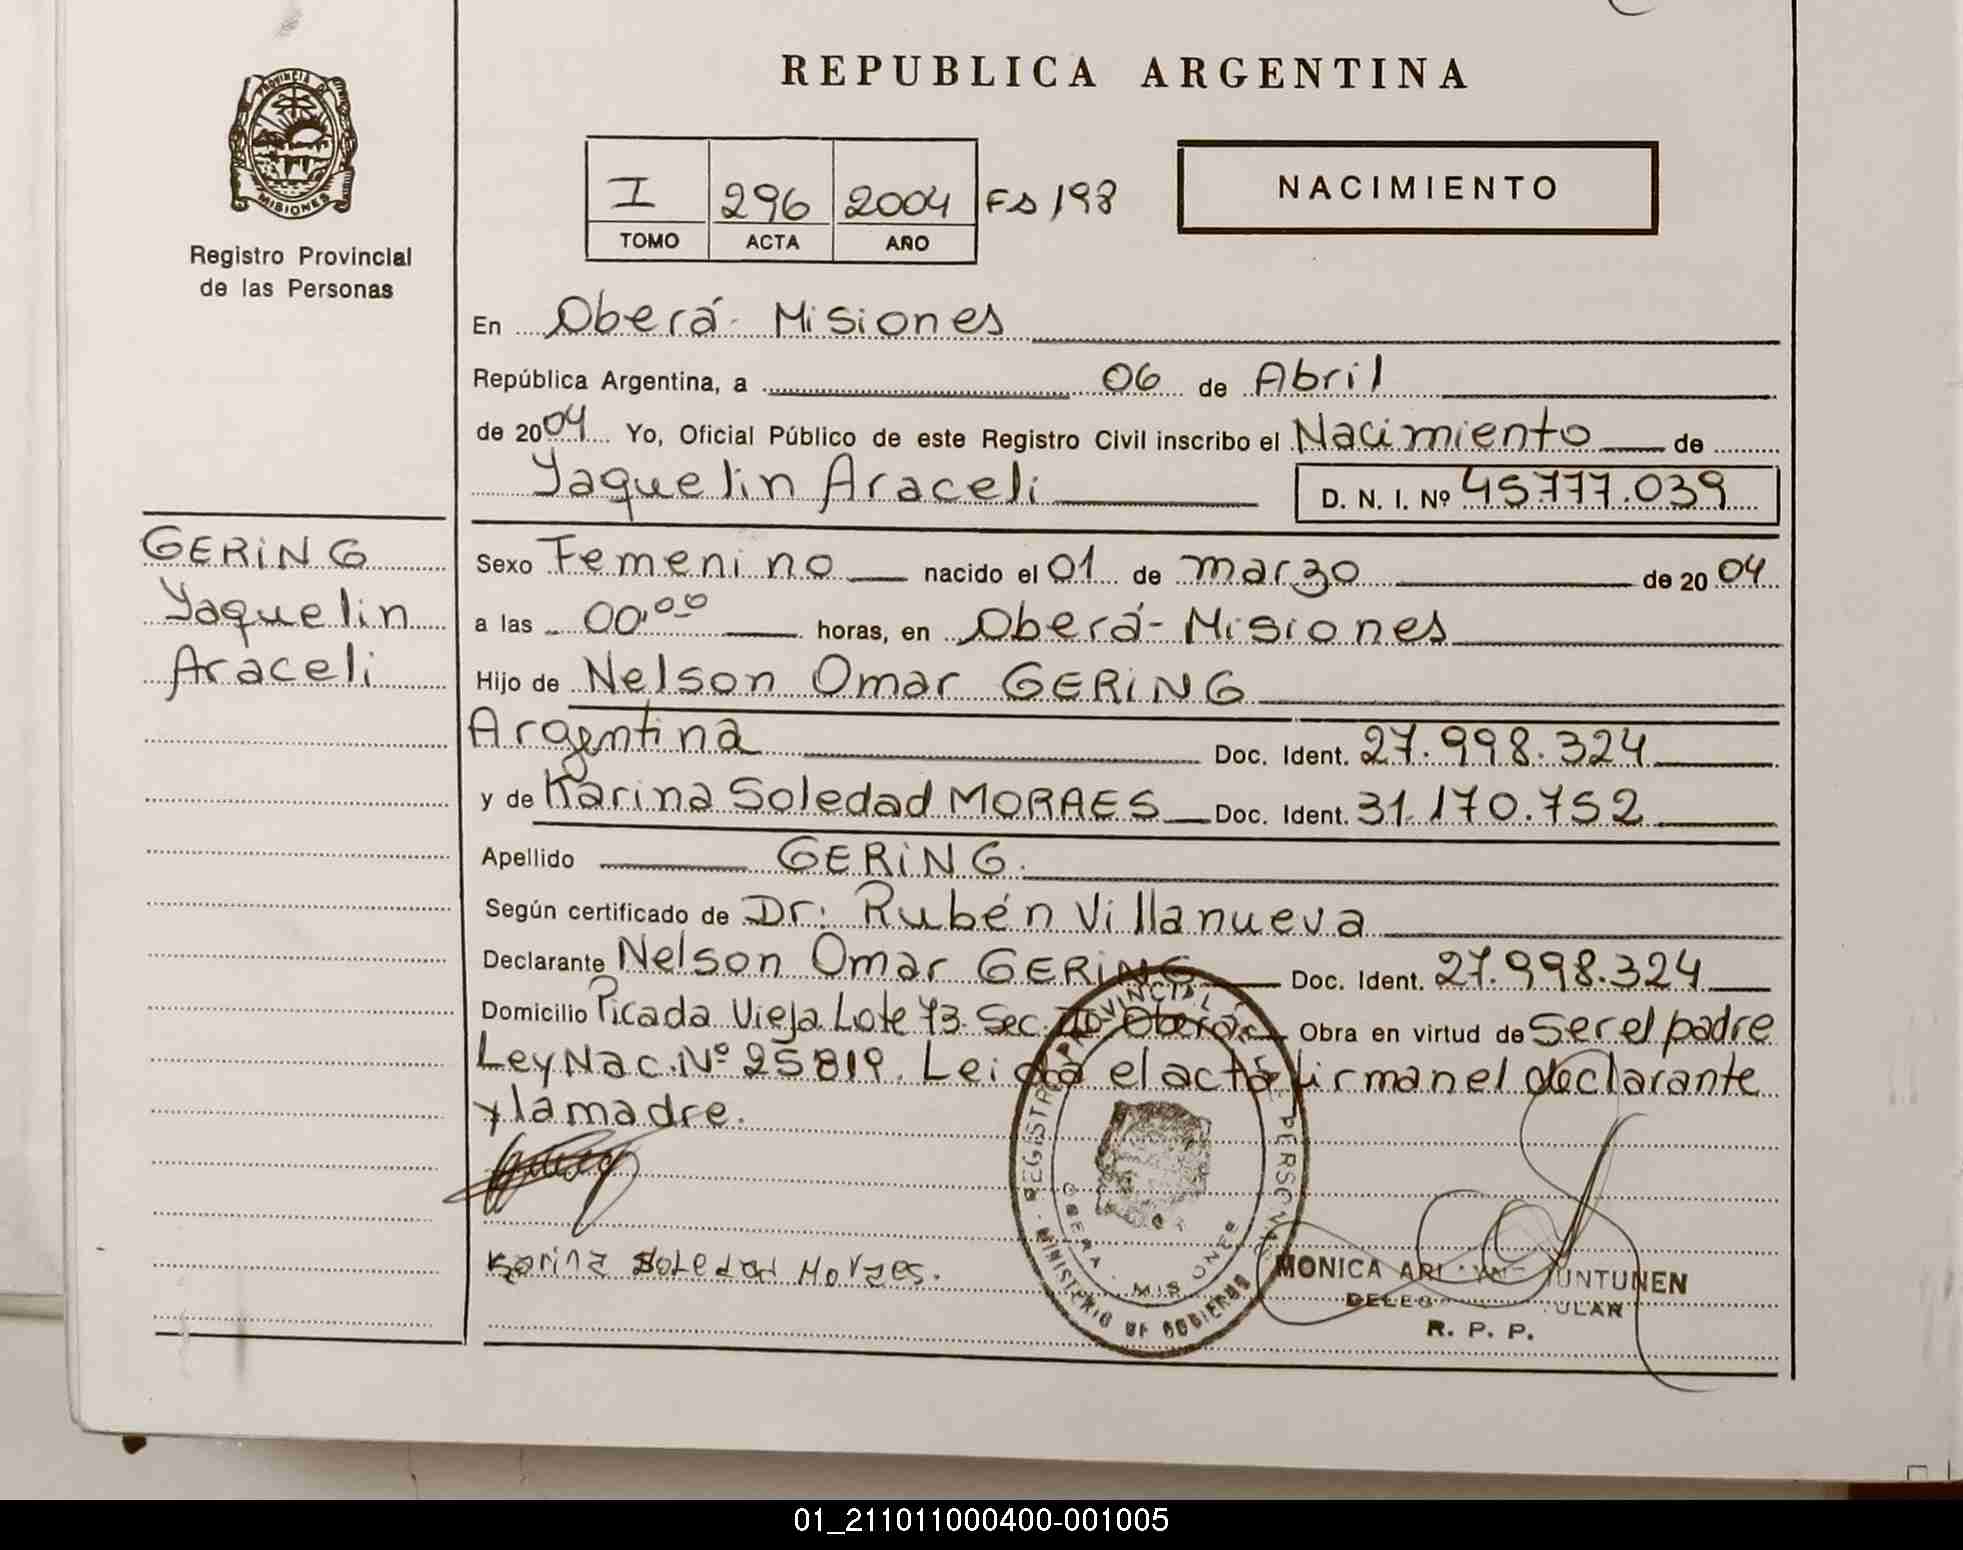 REPUBLICA ARGENTINA
PROVINCIA DE MISIONES
Registro Provincial
de las Personas
I 296 2004 Fs 198
TOMO ACTA AÑO
NACIMIENTO
En Oberá - Misiones
República Argentina, a 06 de Abril
de 2004 Yo, Oficial Público de este Registro Civil inscribo el Nacimiento de
Yaquelin Araceli D. N. I. Nº 45777.039
GERING
Yaquelin
Araceli
Sexo Femenino nacido el 01 de marzo de 2004
a las 00,00 horas, en Oberá - Misiones
Hijo de Nelson Omar GERING
Argentina Doc. Ident. 27.998.324
y de Karina Soledad MORAES Doc. Ident. 31.170.752
Apellido GERING.
Según certificado de Dr: Rubén Villanueva
Declarante Nelson Omar GERING Doc. Ident. 27.998.324
Domicilio Picada Vieja Lote 73 Sec. Oberá Obra en virtud de Ser el padre
Ley Nac. Nº 25819. Leida el acta firman el declarante
y la madre.
Karina Soledad Moraes.
REGISTRO PROVINCIAL DE PERSONAS
MINISTERIO DE GOBIERNO
OBERA - MISIONES
MONICA JUNTUNEN
R. P. P.
01_211011000400-001005